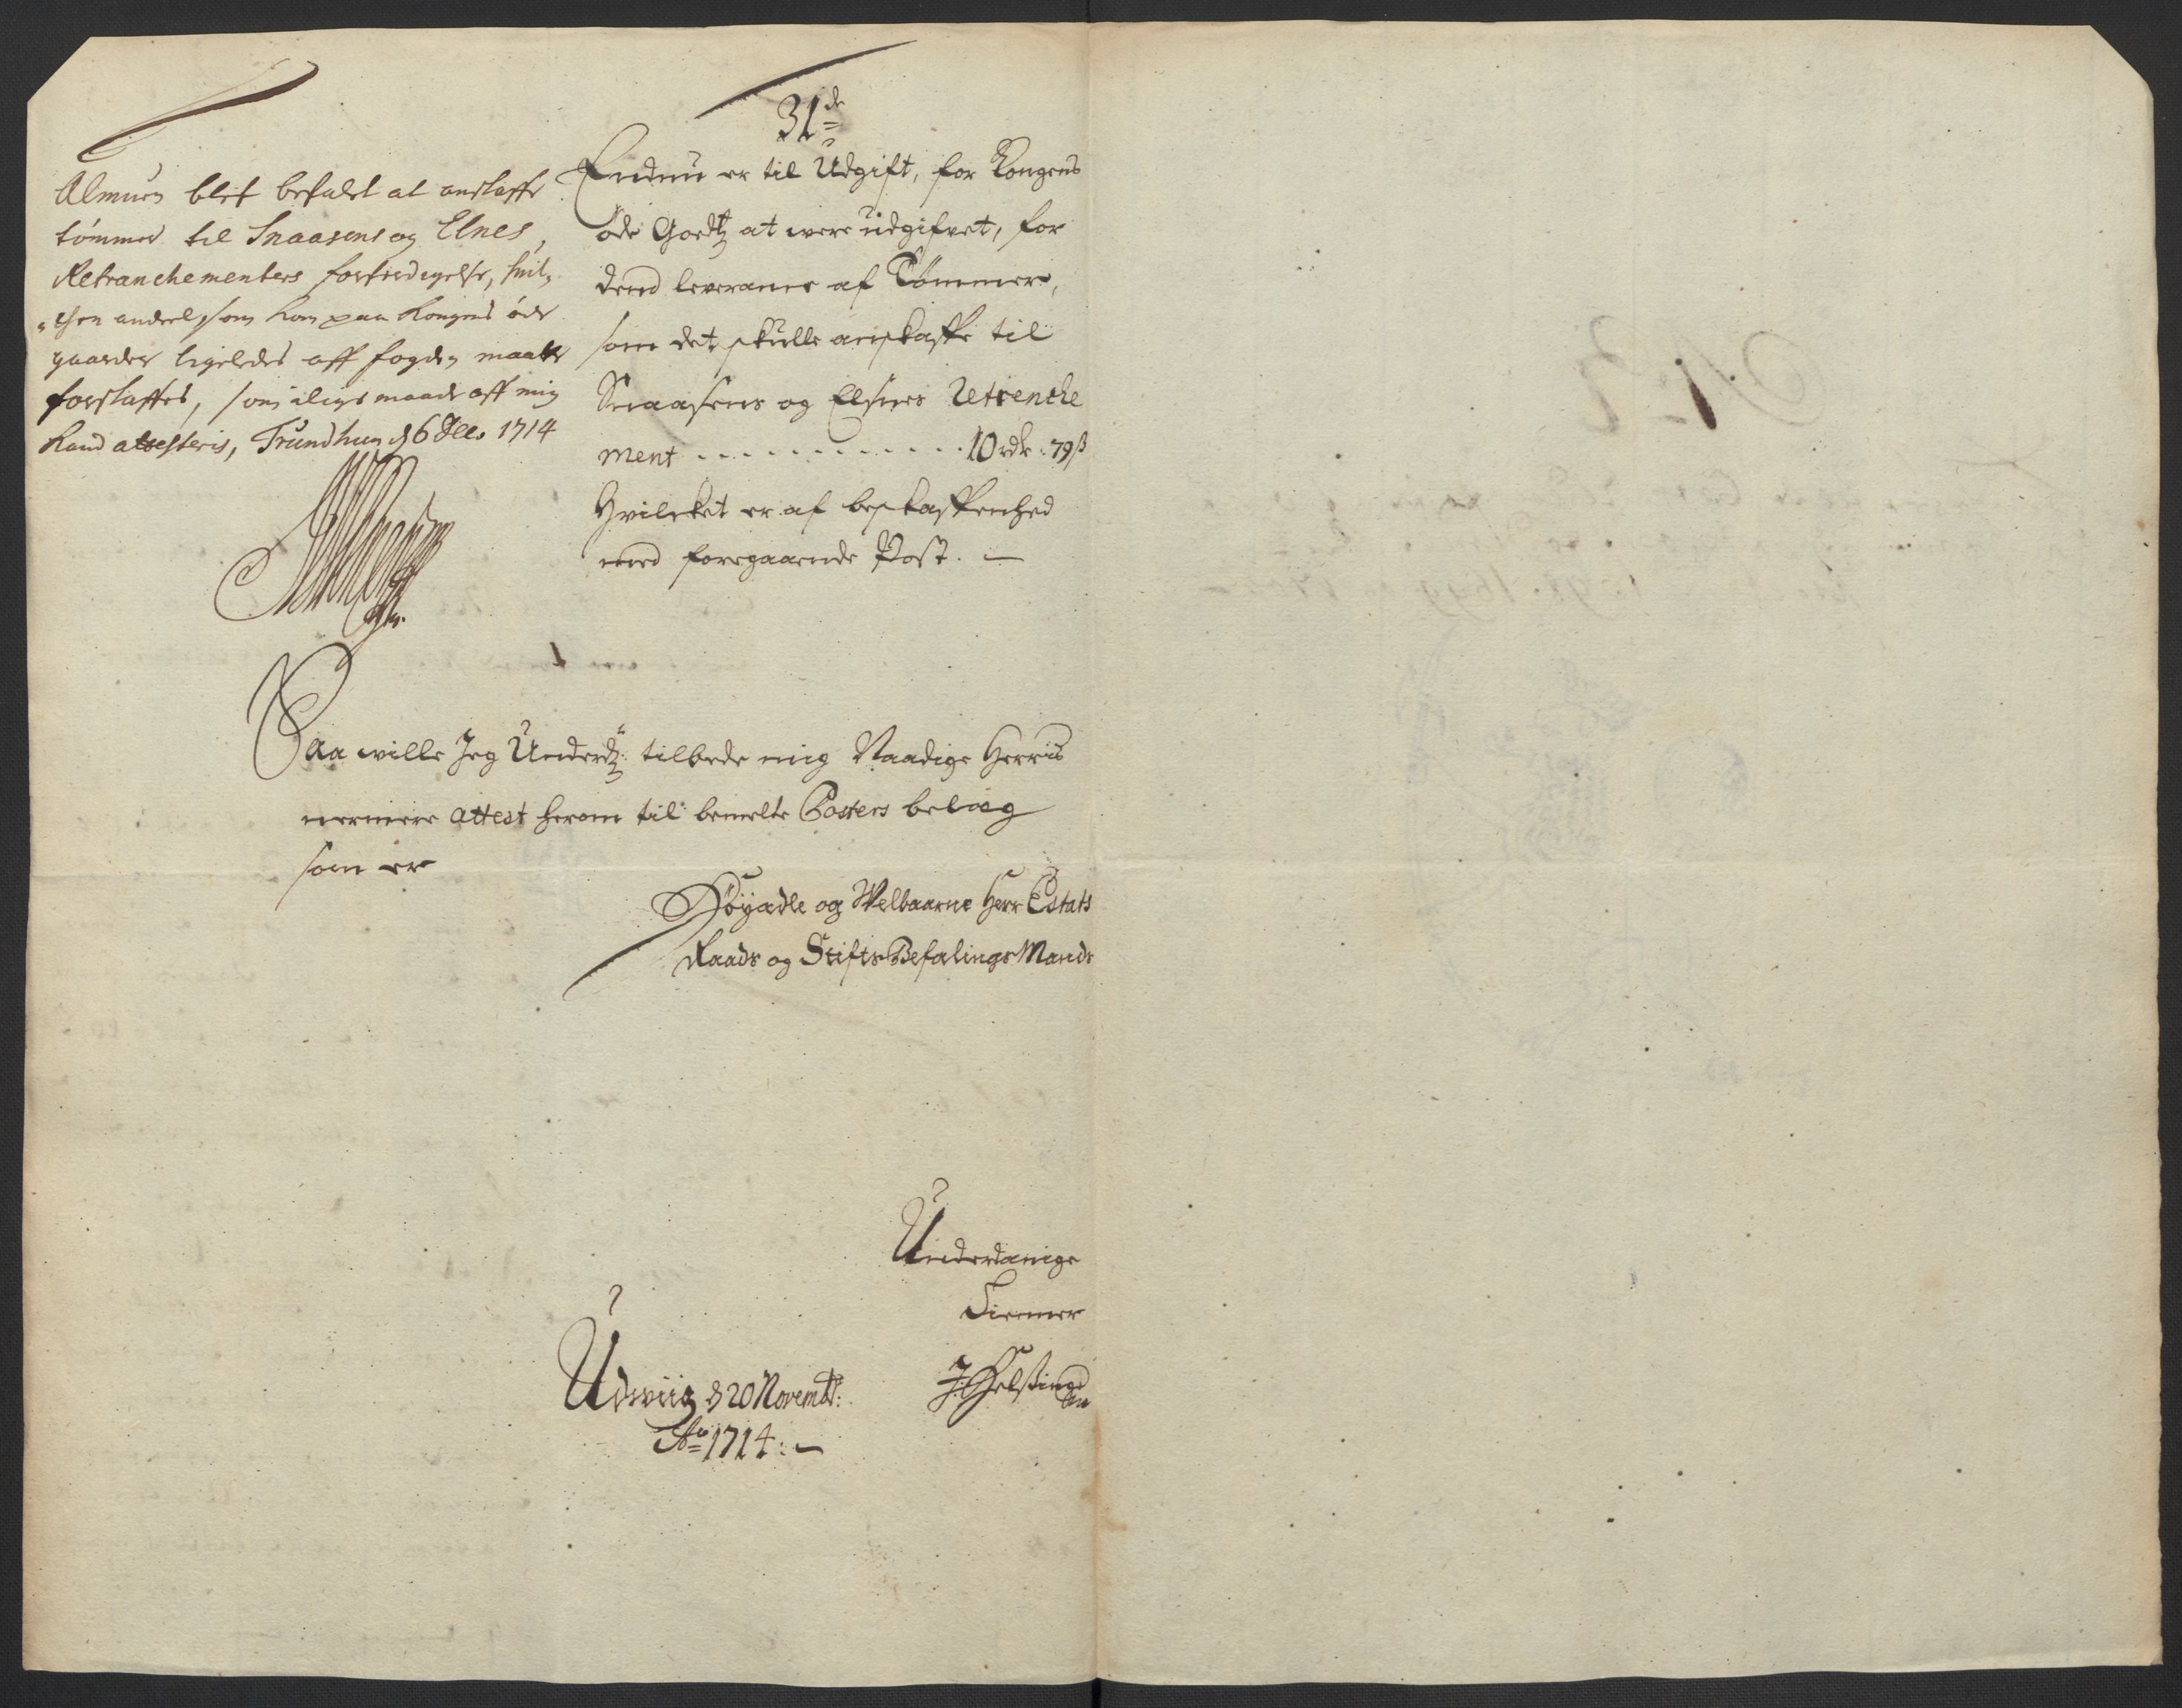 Almuen blef befalet at anskaffe
tømmer til Snaasens og Elnes,
Retranchementers forferdigelse, hvil-
-chen andeel, som kom paa Kongens øde
gaarder ligeledes aff fogden maatte
forskaffes, som i lige maade aff mig
hand attesteris, Trundhiem d 6 Dec. 1714
31de
Endnu er til Udgift, for Kongens
øde Goedtz at were udgifvet, for
dend leverance af Tømmer,
som det skulle anskaffe til
Snaasens og Elsnes Retrenche
ment - - - - - - - - - - - 10 rdr. 79 ß
Hvilcket er af beskaffenhed
med foregaaende Post. —
Saa wille Jeg Underd: tilbede mig Naadige Herris
nermere attest herom til bemelte Posters belæg
som er
Høyædle og Welbaarne Herr Estats
Raads og Stifts Befalings Mands
Underdanige
Tienner
Udviig d 20 Novembr:
Ao 1714: —